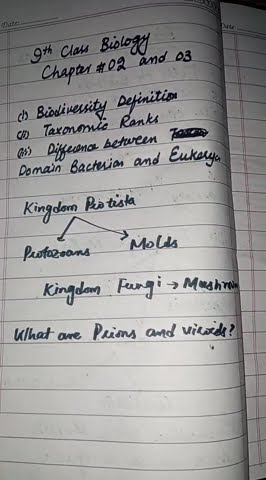 Date:
Date
9th Class Biology
Chapter #02 and 03
(i) Biodiversity Definition
(ii) Taxonomic Ranks
(iii) Difference between
Domain Bacteria and Eukarya
Kingdom Protista
Protozoans Molds
Kingdom Fungi → Mushroom
What are Prions and viroids?